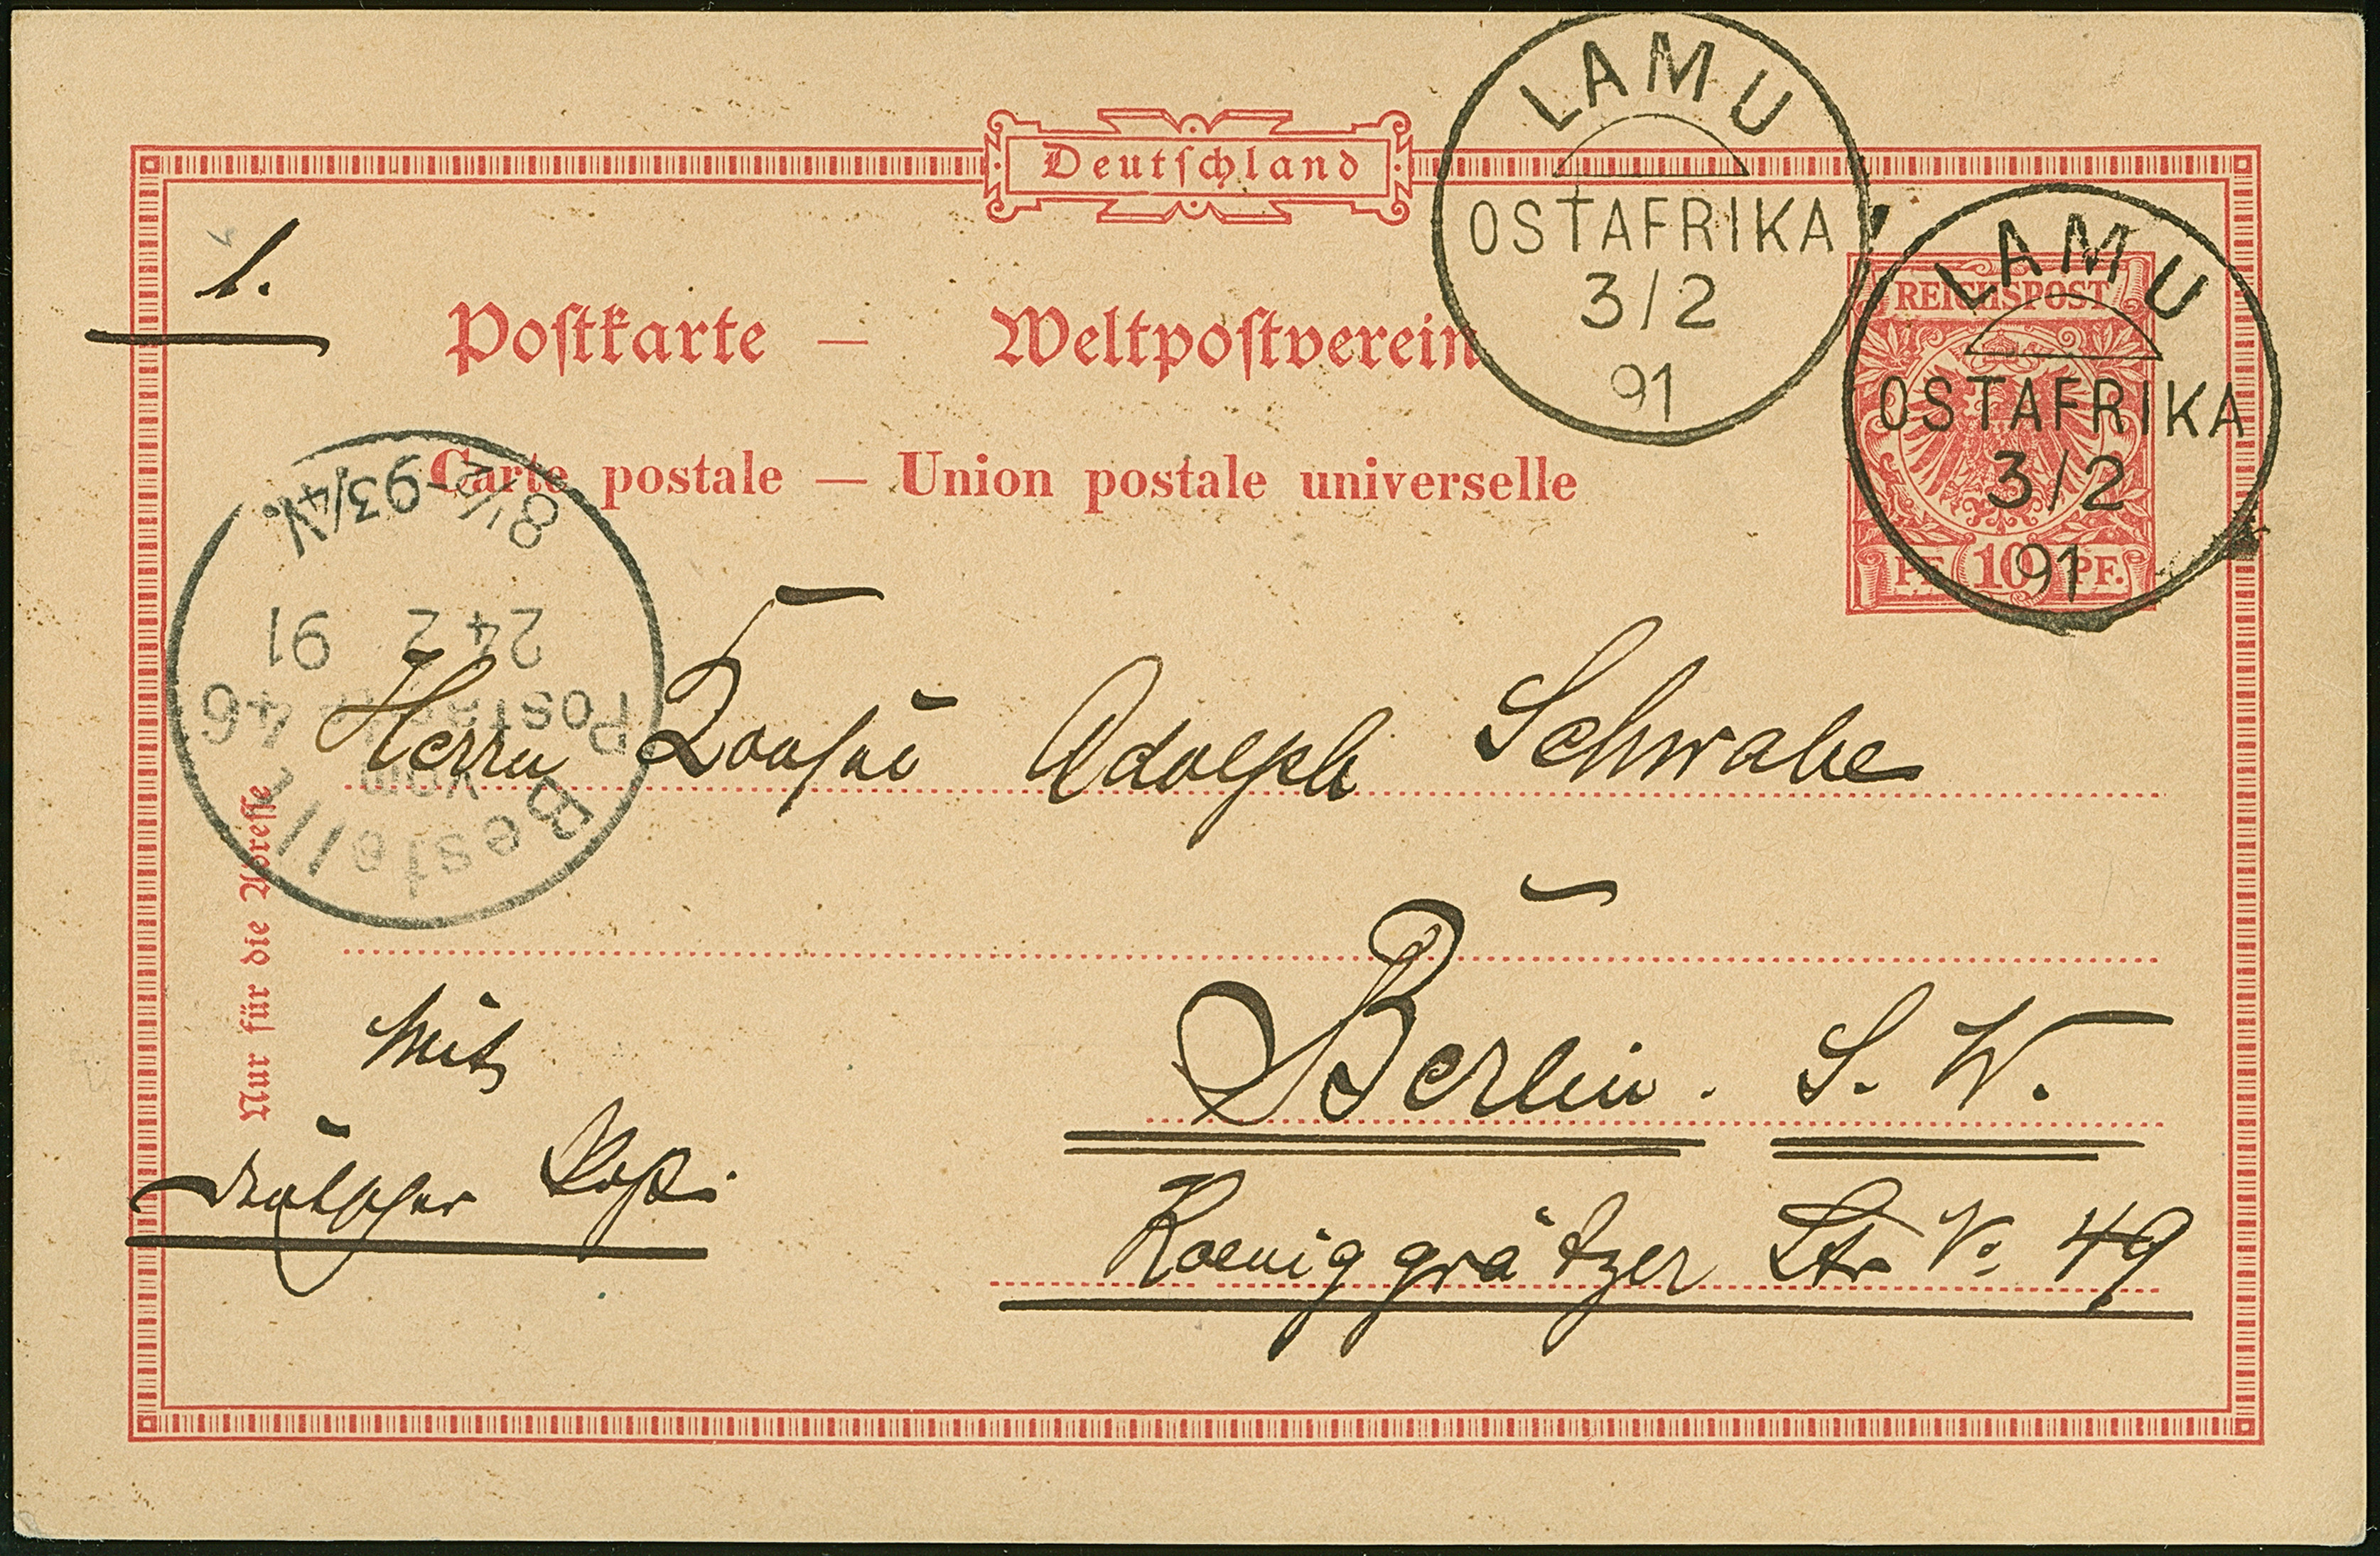 Deutschland
LAMU
OSTAFRIKA
3/2
91
LAMU
OSTAFRIKA
3/2
91
REICHSPOST
PF. 10 PF.
1.
Postkarte — Weltpostverein
Carte postale — Union postale universelle
Bestellt
vom
Postamte 46
24 2 91
8½-9¾V.
Nur für die Adresse
Herrn Adolph Schwabe
Berlin. S. W.
Koeniggrätzer Str No 49
Mit
deutscher Post.